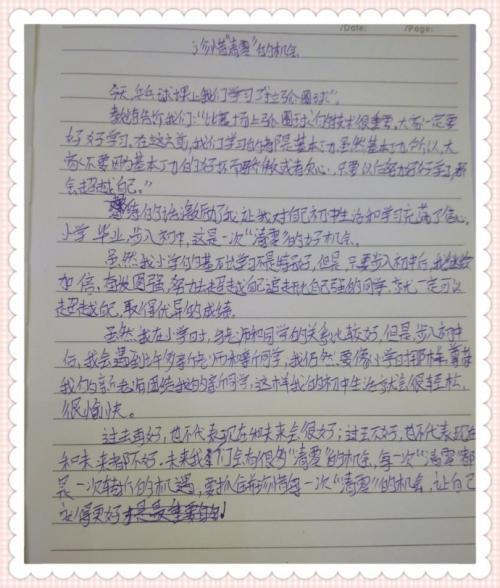 /Date: /Page:
珍惜"清零"的机会
今天，乒乓球课上我们学习"拉弧圈球"。
教练告诉我们："比赛场上弧圈球的技术很重要，大家一定要
好好学习，在这之前，我们学习的都是基本功，虽然基本功所以大
家不要因为基本功的好坏而骄傲或者灰心，只要以后努力好好学习，都
会超越自己。"
教练的话激励了我，让我对自己初中生活和学习充满了信心。
小学毕业，步入初中，这是一次"清零"的好机会。
虽然我小学的基础学习不是特别好，但是，只要步入初中后，我继续
加倍，奋发图强，努力去超越自己追赶比自己强的同学，就一定可以
超越自己，取得优异的成绩。
虽然，我在小学时，与老师和同学的关系比较好，但是，步入初中
后，我会遇到许多新老师和新同学，我仍然要像小学时那样尊敬
我们的新老师团结我的新同学，这样我的初中生活就会很轻松、
很愉快。
过去再好，也不代表现在和未来会很好；过去不好，也不代表现在
和未来都不好。未来我们会有很多"清零"的机会，每一次"清零"都
是一次转折的机遇，要抓住和珍惜每一次"清零"的机会，让自己
变得更好才是最重要的！